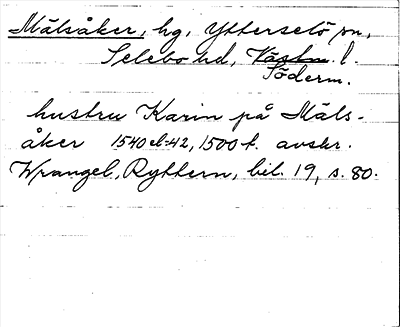 Mälsåker, hg, Ytterselö sn,
Selebo hd, Västm. l.
Söderm.
hustru Karin på Mäls-
åker 1540 el. 42, 1500 t. avskr.
Wrangel, Ryttern, bil. 19, s. 80.